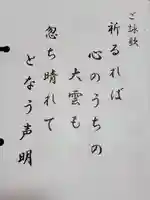 ご詠歌
祈るれば
心のうちの
大雲も
忽ち晴れて
となう声明